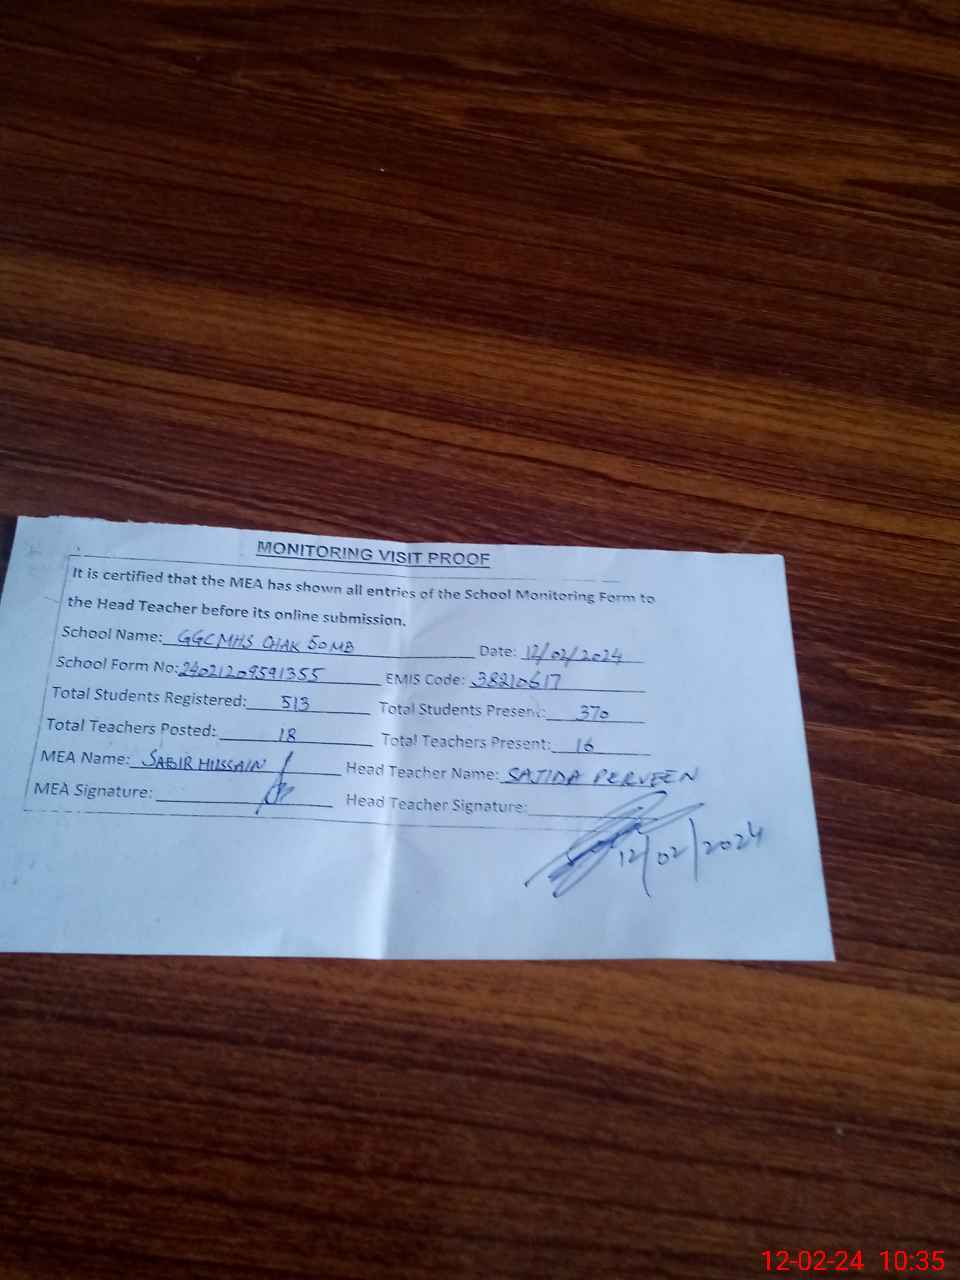 MONITORING VISIT PROOF
It is certified that the MEA has shown all entries of the School Monitoring Form to
the Head Teacher before its online submission.
School Name: GGCMHS CHAK 50 MB Date: 12/02/2024
School Form No: 24021209591355 EMIS Code: 38210617
Total Students Registered: 513 Total Students Present: 370
Total Teachers Posted: 18 Total Teachers Present: 16
MEA Name: SABIR HUSSAIN Head Teacher Name: SAJIDA PERVEEN
MEA Signature: Head Teacher Signature:
12/02/2024
12-02-24 10:35